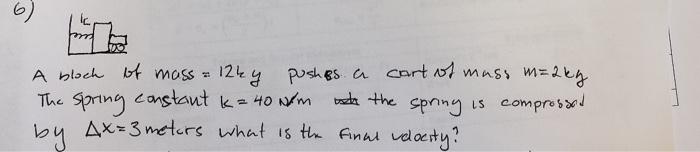 6)
k
A block of mass = 12kg pushes a cart of mass m=2kg
The spring constant k = 40 N/m the spring is compressed
by Δx=3 meters what is the final velocity?